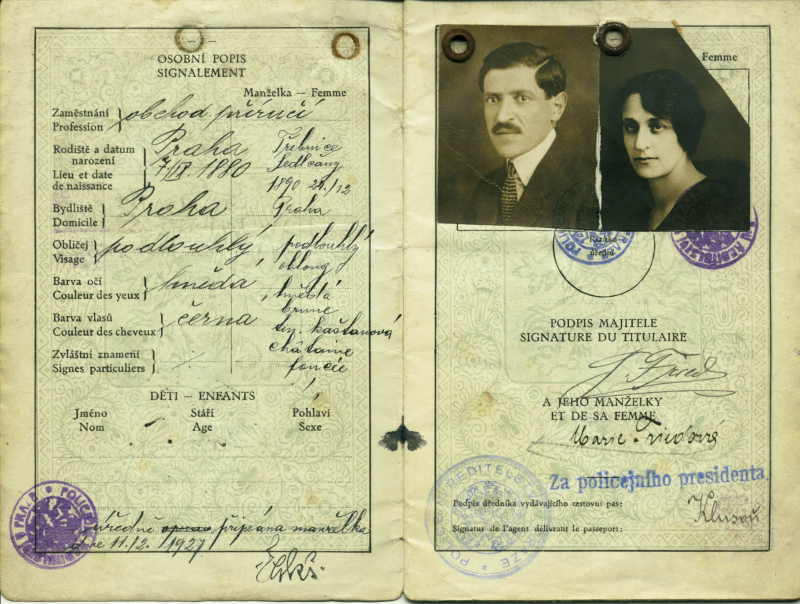 OSOBNÍ POPIS
SIGNALEMENT
Manželka — Femme
Zaměstnání
Profession
obchod příručí
Rodiště a datum
narození
Lieu et date
de naissance
Praha
7/IX 1880
Třebnice
Sedlčany
1890 24./12
Bydliště
Domicile
Praha
Praha
Obličej
Visage
podlouhlý
podlouhlý
oblong
Barva očí
Couleur des yeux
hnědá
hnědá
brune
Barva vlasů
Couleur des cheveux
černá
tm. kaštanová
châtaine
foncée
Zvláštní znamení
Signes particuliers
DĚTI — ENFANTS
Jméno
Nom
Stáří
Age
Pohlaví
Sexe
úředně připsána manželka
11./2. 1927
Femme
PODPIS MAJITELE
SIGNATURE DU TITULAIRE
A JEHO MANŽELKY
ET DE SA FEMME
Marie Friedová
Za policejního presidenta.
Podpis úředníka vydávajícího cestovní pas:
Signatur de l'agent délivrant le passeport: